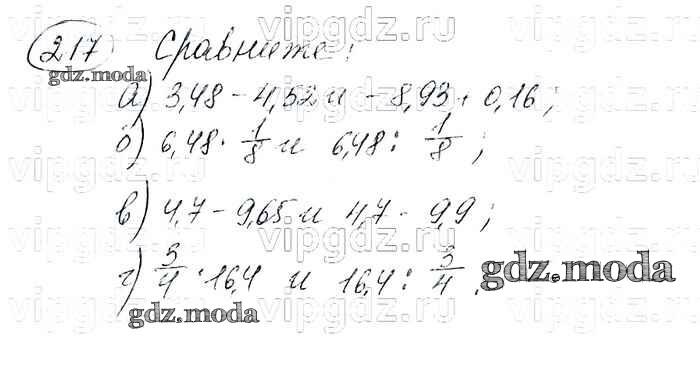 217 Сравните:
а) 3,48 - 4,52 и -8,93 + 0,16;
б) 6,48 · 1/8 и 6,48 : 1/8;
в) 4,7 - 9,65 и 4,7 - 9,9;
г) 3/4 · 16,4 и 16,4 : 3/4.
gdz.moda
gdz.moda
gdz.moda
vipgdz.ru